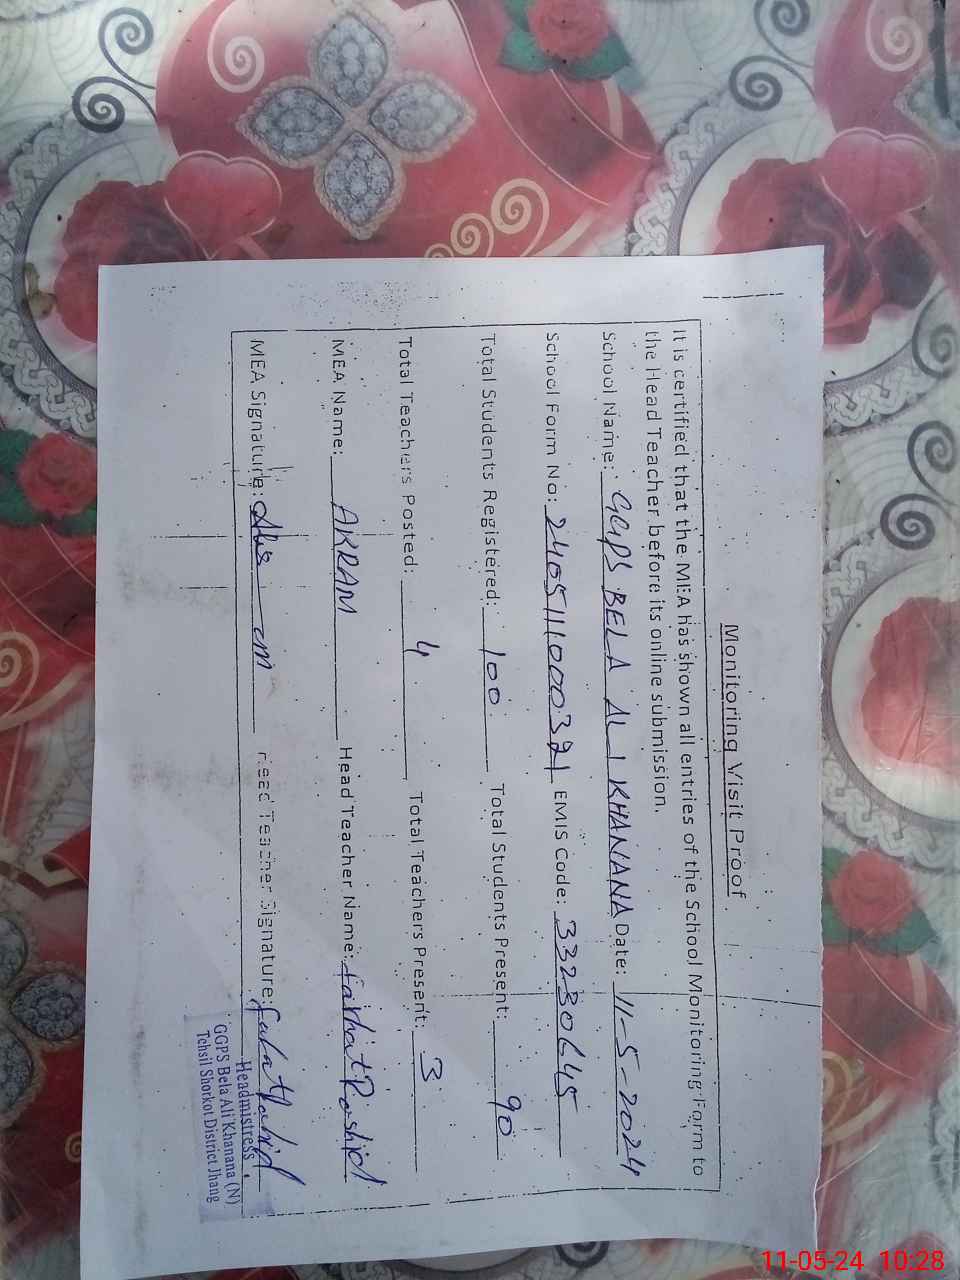 Monitoring Visit Proof
It is certified that the MEA has shown all entries of the School Monitoring Form to
the Head Teacher before its online submission.
School Name: GGPS BELA ALI KHANANA Date: 11-5-2024
School Form No: 2405111000321 EMIS Code: 33230645
Total Students Registered: 100 Total Students Present: 90
Total Teachers Posted: 4 Total Teachers Present: 3
MEA Name: AKRAM Head Teacher Name: Farhat Rashid
MEA Signature: Head Teacher Signature:
Headmistress
GGPS Bela Ali Khanana (N)
Tehsil Shorkot District Jhang
11-05-24 10:28